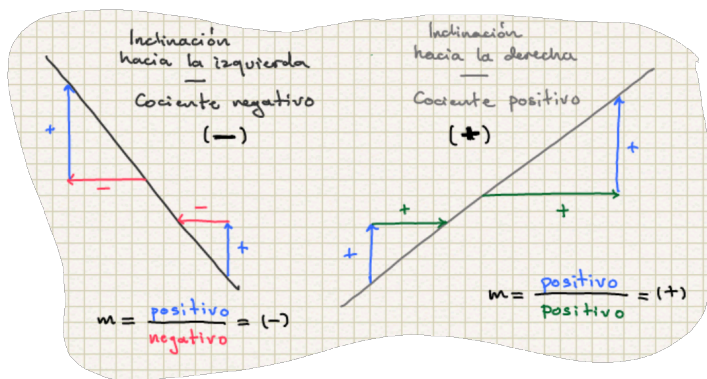 Inclinación
hacia la izquierda
—
Cociente negativo
(−)
+
−
−
+
m = positivo / negativo = (-)
Inclinación
hacia la derecha
—
Cociente positivo
(+)
+
+
+
+
m = positivo / positivo = (+)